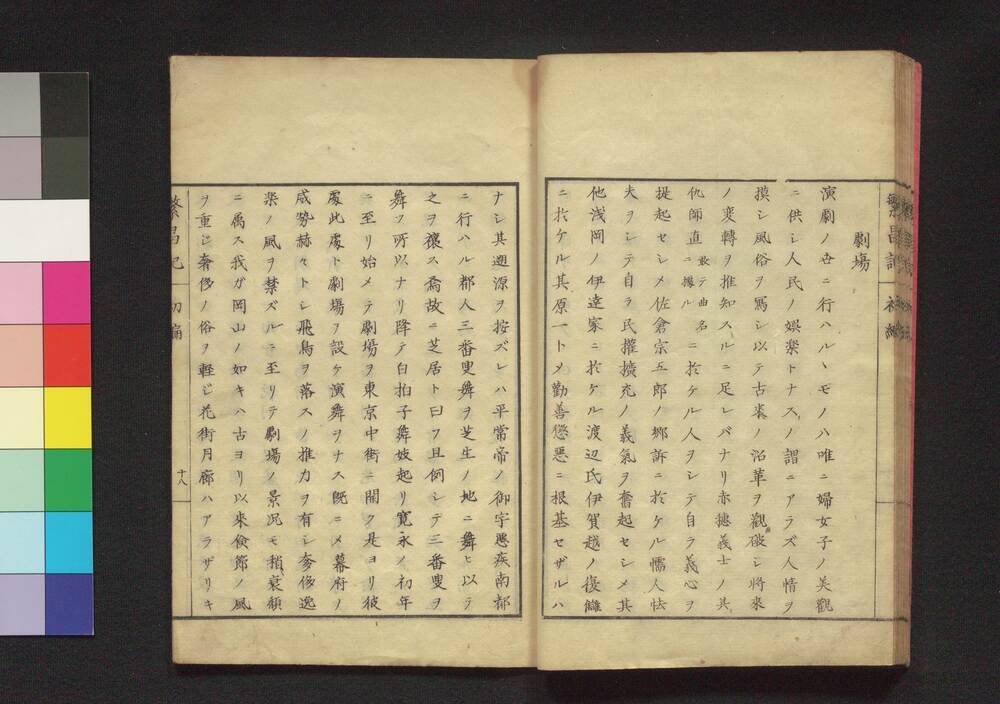 劇場
演劇ノ世ニ行ハルヽモノハ唯ニ婦女子ノ美觀
ニ供シ人民ノ娯楽トナスノ謂ニアラズ人情ヲ
摸シ風俗ヲ寫シ以テ古来ノ沿革ヲ觀破シ将来
ノ変轉ヲ推知スルニ足レバナリ赤穂義士ノ其
仇師直敢テ曲名ニ據ルニ於ケル人ヲシテ自ラ義心ヲ
提起セシメ佐倉宗五郎ノ郷訴ニ於ケル懦人怯
夫ヲシテ自ラ民權擴充ノ義氣ヲ奮起セシメ其
他浅岡ノ伊達家ニ於ケル渡辺氏伊賀越ノ復讎
ニ於ケル其原一トメ勸善懲悪ニ根基セザルハ
ナシ其遡源ヲ按ズレハ平常帝ノ御宇悪疾南都
ニ行ハル都人三番叟舞ヲ芝生ノ地ニ舞ヒ以テ
之ヲ穰ス斎故ニ芝居ト曰フ且例シテ三番叟ヲ
舞フ所以ナリ降テ白拍子舞妓起リ寛永ノ初年
ニ至リ始メテ劇場ヲ東京中街ニ開ク是ヨリ彼
處此處ト劇場ヲ設ケ演舞ヲナス既ニメ幕府ノ
威勢赫々トシ飛鳥ヲ落スノ推力ヲ有シ奓侈逸
楽ノ風ヲ禁ズルニ至リテ劇場ノ景况モ稍衰頽
ニ属ス我ガ岡山ノ如キハ古ヨリ以来儉節ノ風
ヲ重ジ奢侈ノ俗ヲ輕ジ花街月廓ハアラザリキ
繁昌記
初編
十八